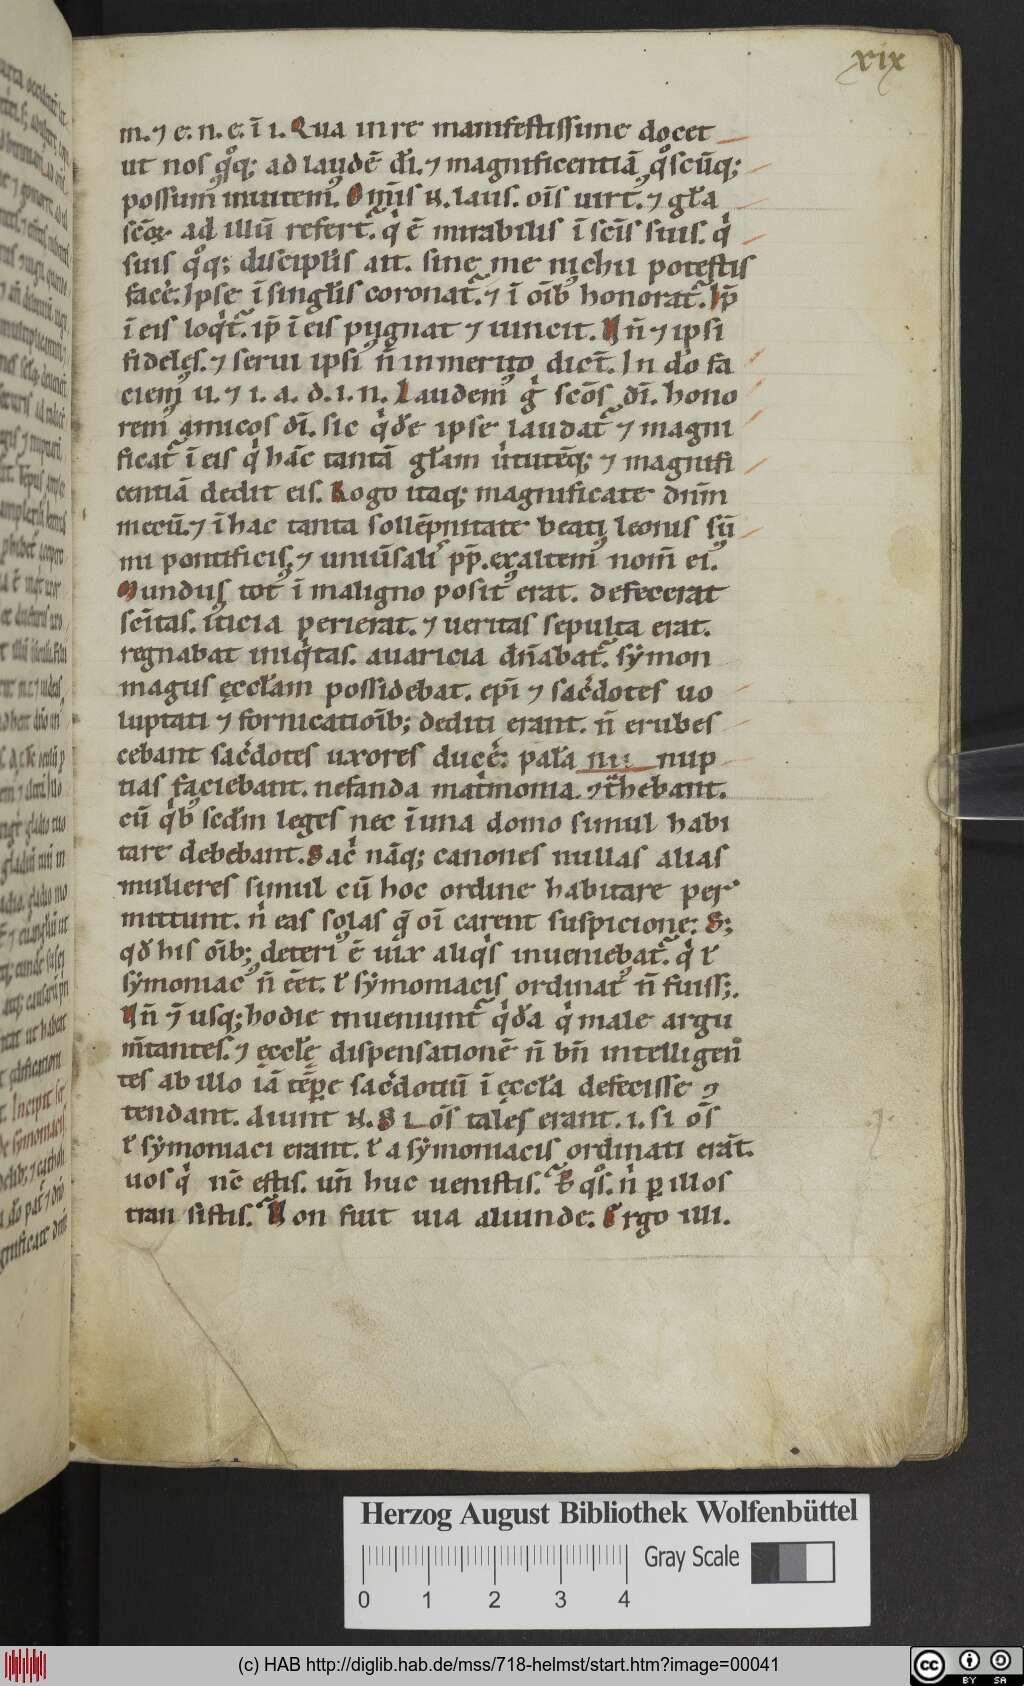 xix
m. ⁊ e. n. e. ī ı. Qua in re manifestissime docet
ut nos q̊q; ad laudē di̅. ⁊ magnificentiā q̊scūq;
possum᷒ inuitem᷒. Om̅is n. laus. ois̅ uirt᷒. ⁊ gl̅a
sc̅oꝝ ad illū refert᷑. qͥ ē mirabilis ī sc̅is suis. qͥ
suis q̊q; discipl̅is ait. sine me nichil potestis
face᷑. Ipse ī singl̅is coronat᷑. ⁊ ī oib̅ honorat᷑. Ip̅
ī eis loqͥt᷑. ip̅ ī eis pugnat ⁊ uincit. Nn̅ ⁊ ipsi
fideles. ⁊ serui ipsi n̅ inmerito dict̅. In do̅ fa
ciem᷒ u. ⁊ i. a. d. i. n. Laudem᷒ gͥ sco̅s di̅. hono
rem᷒ amicos di̅. sic qͥdē ipse laudat᷑ ⁊ magni
ficat᷑ ī eis qͥ hāc tantā gl̅am uͥtutēq; ⁊ magnifi
centiā dedit eis. Rogo itaq; magnificate dnm̅
mecū. ⁊ ī hac tanta sollēpnitate beati leonis sū
mi pontificis. ⁊ uniūsali᷒ pp̅. exaltem᷒ nom̅ ei᷒.
Mundus tot᷒ ī maligno posit᷒ erat. defecerat
sc̅itas. iu̅ticia perierat. ⁊ ueritas sepulta erat.
regnabat iniqͥtas. auaricia dn̅abat᷑. symon
magus ęccl̅am possidebat. epi̅ ⁊ sac͛dotes uo
luptati ⁊ fornicatioib̅; dediti erant. n̅ erubes
cebant sac͛dotes uxores duce͛: pala̅ nup
tias faciebant. nefanda mat͛monia ⁊t͛hebant.
cū qͥb᷒ scd̅m leges nec ī una domo simul habi
tare debebant. Sac͛ nāq; canones nullas alias
mulieres simul cū hoc ordine habitare per
mittunt. nͥ eas solas q̄ oi̅ carent suspicione: S;
qd̅ his oib̅; deteri᷒ ē uix aliqͥs inueniebat᷑. qͥ l̅
symoniac᷒ n̅ ēet. l̅ symoniacis ordinat᷒ n̅ fuiss;.
Nn̅ ⁊ usq; hodie inueniunt᷑ qͥda̅ qͥ male argu
m̅tantes. ⁊ ęccl̅ę dispensationē n̅ bn̅ intelligen
tes ab illo iā tēp̲e sac͛dotiū ī ęccl̅a defecisse ꝯ
tendant. aiunt n. Si os̅ tales erant. i. si os̅
l̅ symoniaci erant. l̅ a symoniacis ordinati erāt.
uos qͥ nc̅ estis. un̅ huc uenistis. P qo̅s. nͥ ꝑ illos
tran sistis. Non fuit uia aliunde. Ergo illi.
Herzog August Bibliothek Wolfenbüttel
Gray Scale
0 1 2 3 4
(c) HAB http://diglib.hab.de/mss/718-helmst/start.htm?image=00041
cc BY SA